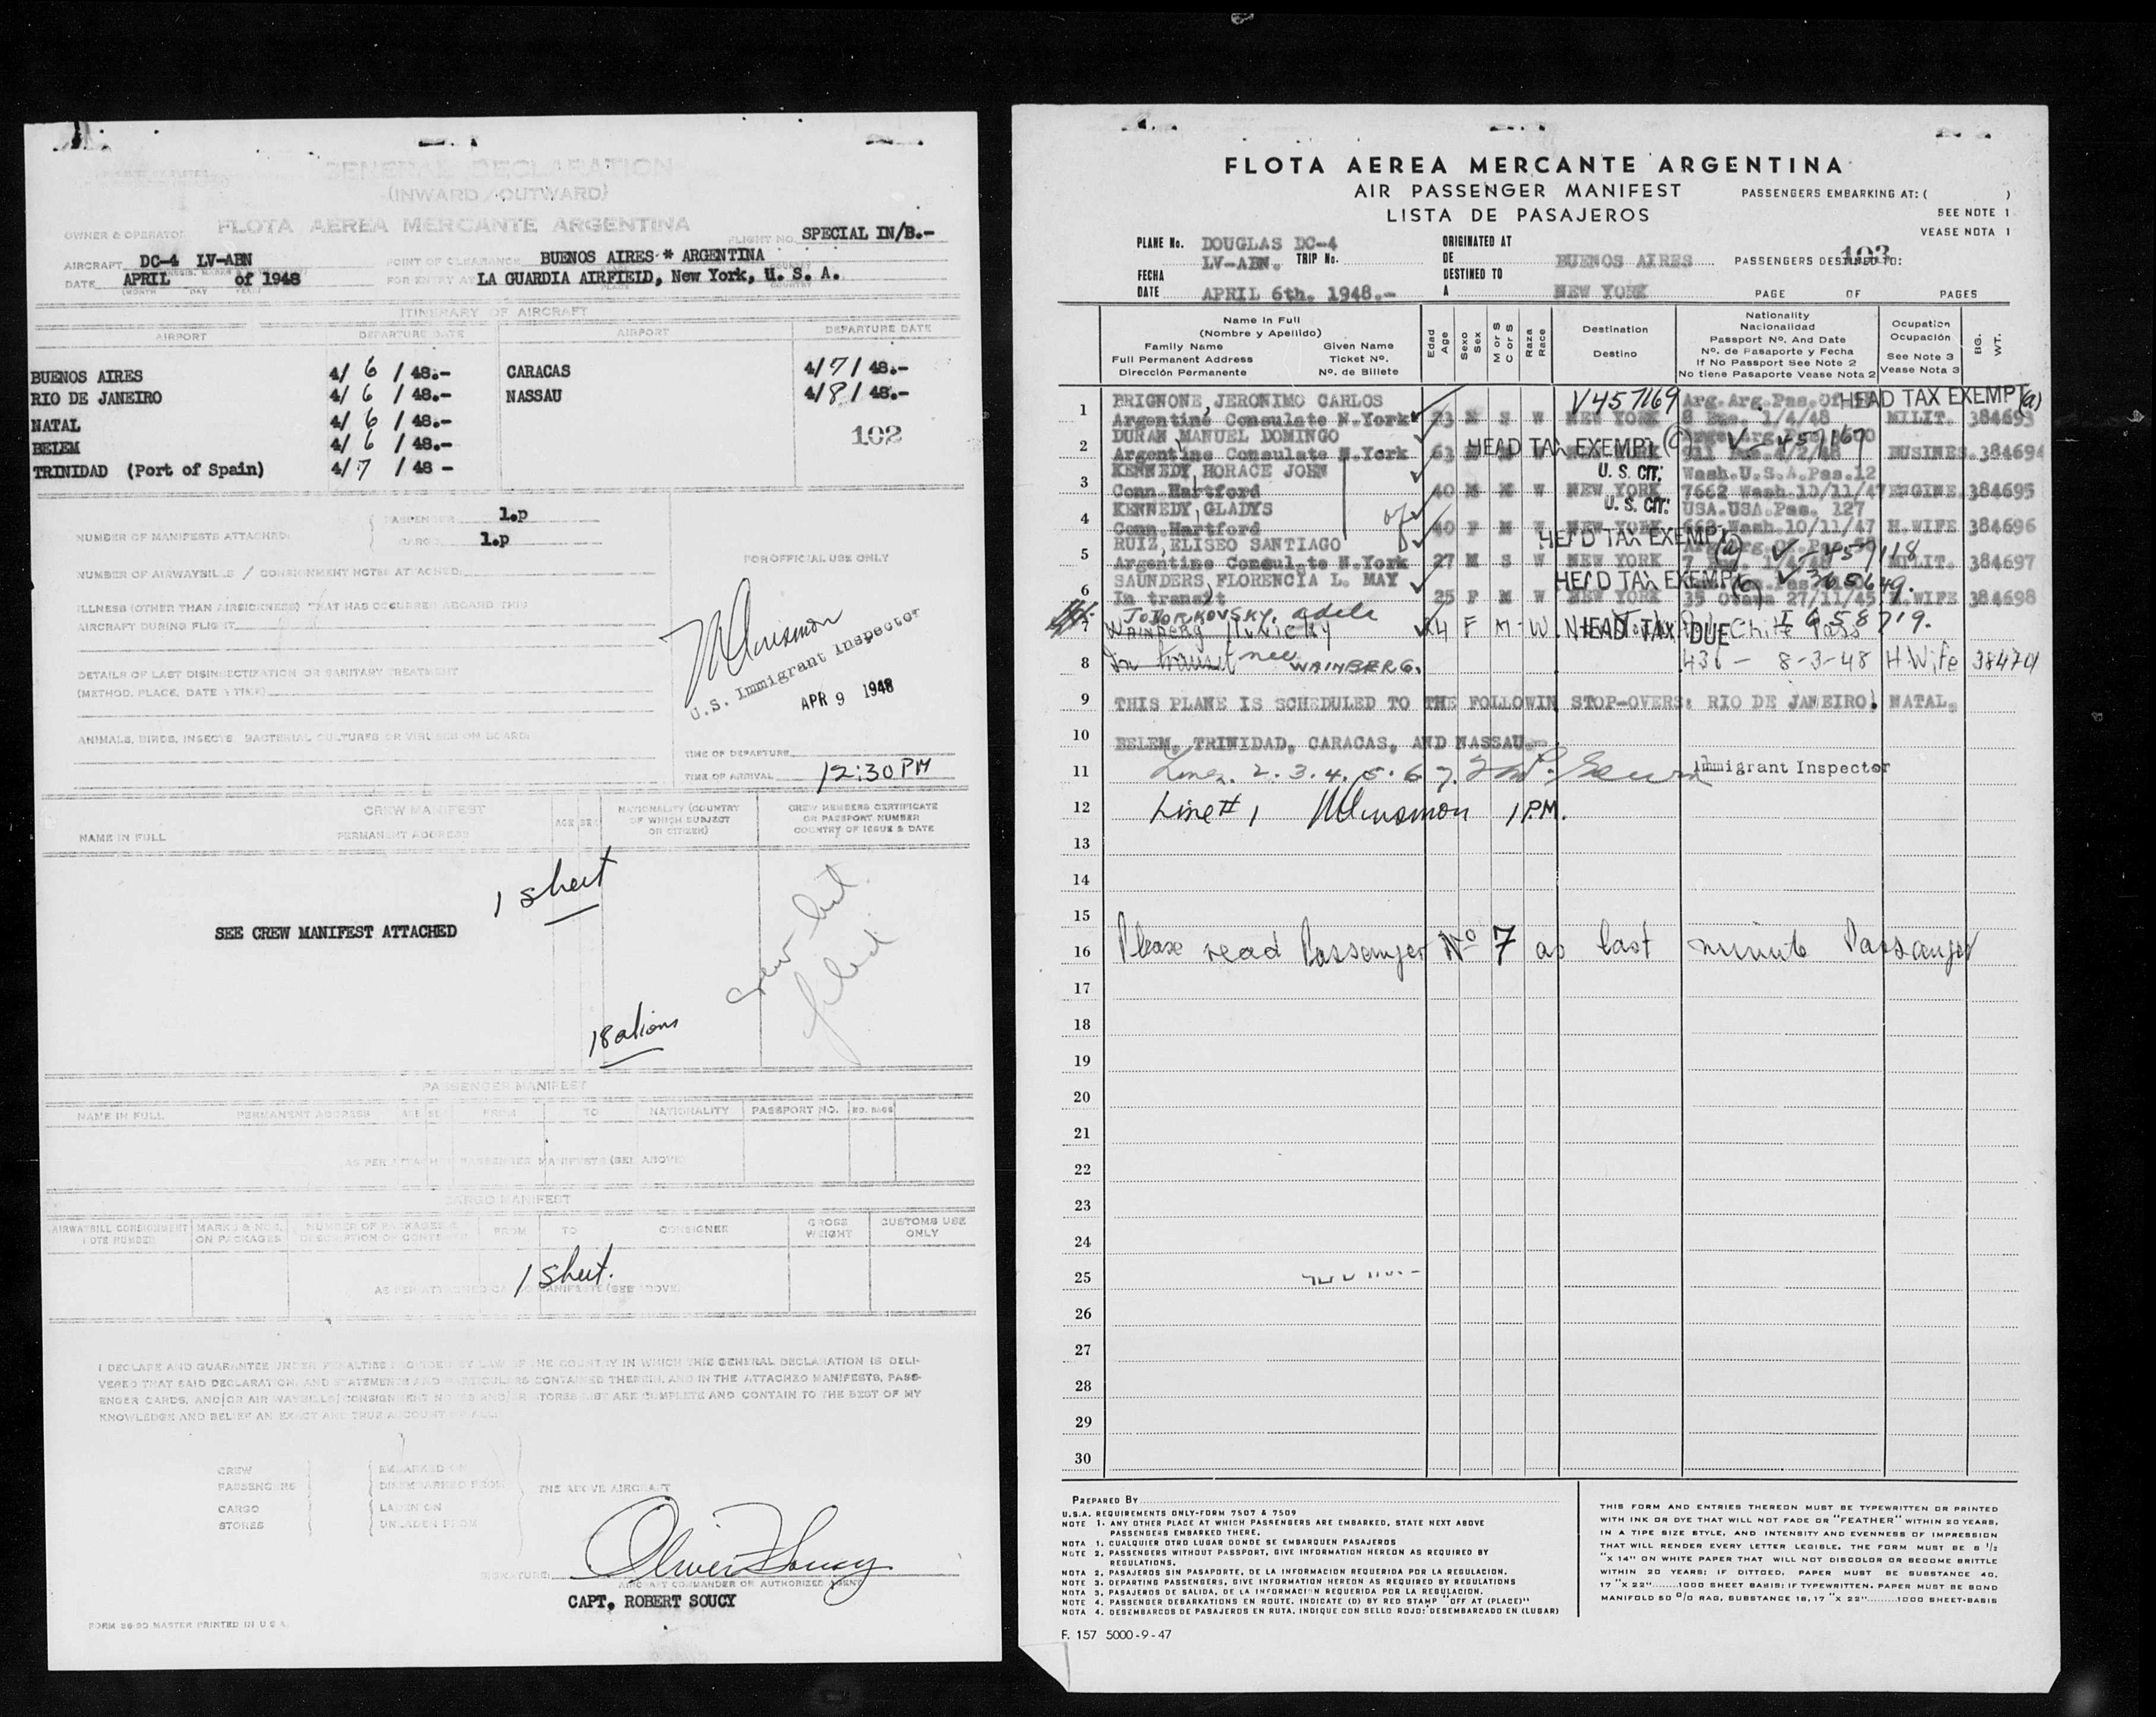 GENERAL DECLARATION
(INWARD/OUTWARD)
FLOTA AEREA MERCANTE ARGENTINA
OWNER & OPERATOR
FLIGHT NO. SPECIAL IN/B.-
AIRCRAFT DC-4 LV-ABN POINT OF CLEARANCE BUENOS AIRES * ARGENTINA
DATE APRIL of 1948 FOR ENTRY AT LA GUARDIA AIRFIELD, New York, U. S. A.
ITINERARY OF AIRCRAFT
AIRPORT DEPARTURE DATE AIRPORT DEPARTURE DATE
BUENOS AIRES 4/ 6 / 48.- CARACAS 4/7/ 48.-
RIO DE JANEIRO 4/ 6 / 48.- NASSAU 4/8/ 48.-
NATAL 4/ 6 / 48.-
BELEM 4/ 6 / 48.- 102
TRINIDAD (Port of Spain) 4/ 7 / 48 -
NUMBER OF MANIFESTS ATTACHED: PASSENGER 1.p
CARGO 1.p
NUMBER OF AIRWAYBILLS / CONSIGNMENT NOTES ATTACHED
FOR OFFICIAL USE ONLY
ILLNESS (OTHER THAN AIRSICKNESS) THAT HAS OCCURRED ABOARD THIS
AIRCRAFT DURING FLIGHT
U.S. Immigrant Inspector
APR 9 1948
DETAILS OF LAST DISINSECTIZATION OR SANITARY TREATMENT
(METHOD, PLACE, DATE & TIME)
ANIMALS, BIRDS, INSECTS, BACTERIAL CULTURES OR VIRUSES ON BOARD:
TIME OF DEPARTURE
TIME OF ARRIVAL 12:30 PM
CREW MANIFEST
NAME IN FULL PERMANENT ADDRESS AGE SEX NATIONALITY (COUNTRY OF WHICH SUBJECT OR CITIZEN) CREW MEMBERS CERTIFICATE OR PASSPORT NUMBER COUNTRY OF ISSUE & DATE
1 sheet
SEE CREW MANIFEST ATTACHED
crew list
filed
18 aliens
PASSENGER MANIFEST
NAME IN FULL PERMANENT ADDRESS AGE SEX FROM TO NATIONALITY PASSPORT NO. NO. BAGS
AS PER ATTACHED PASSENGER MANIFESTS (SEE ABOVE)
CARGO MANIFEST
AIRWAYBILL CONSIGNMENT NOTE NUMBER MARKS & NOS. ON PACKAGES NUMBER OF PACKAGES & DESCRIPTION OF CONTENTS FROM TO CONSIGNEE GROSS WEIGHT CUSTOMS USE ONLY
1 sheet.
AS PER ATTACHED CARGO MANIFESTS (SEE ABOVE)
I DECLARE AND GUARANTEE UNDER PENALTIES PROVIDED BY LAW OF THE COUNTRY IN WHICH THIS GENERAL DECLARATION IS DELI-
VERED THAT SAID DECLARATION, AND STATEMENTS AND PARTICULARS CONTAINED THEREIN, AND IN THE ATTACHED MANIFESTS, PASS-
ENGER CARDS, AND/OR AIR WAYBILLS/CONSIGNMENT NOTES AND/OR STORES LIST ARE COMPLETE AND CONTAIN TO THE BEST OF MY
KNOWLEDGE AND BELIEF AN EXACT AND TRUE ACCOUNT OF ALL:
CREW EMBARKED ON
PASSENGERS DISEMBARKED FROM THE ABOVE AIRCRAFT
CARGO LADEN ON
STORES UNLADEN FROM
SIGNATURE:
AIRCRAFT COMMANDER OR AUTHORIZED AGENT
CAPT. ROBERT SOUCY
FORM 86-90 MASTER PRINTED IN U S A.
FLOTA AEREA MERCANTE ARGENTINA
AIR PASSENGER MANIFEST
LISTA DE PASAJEROS
PASSENGERS EMBARKING AT: ( )
SEE NOTE 1
VEASE NOTA 1
PLANE No. DOUGLAS DC-4 ORIGINATED AT
LV-ABN. TRIP No. DE BUENOS AIRES PASSENGERS DESTINED TO: 103
FECHA DESTINED TO
DATE APRIL 6th. 1948.- A NEW YORK PAGE OF PAGES
Name in Full
(Nombre y Apellido)
Family Name Given Name
Full Permanent Address Ticket Nº.
Dirección Permanente Nº. de Billete
Edad Age
Sexo Sex
M or S C or S
Raza Race
Destination
Destino
Nationality
Nacionalidad
Passport Nº. And Date
Nº. de Pasaporte y Fecha
If No Passport See Note 2
No tiene Pasaporte Vease Nota 2
Ocupation
Ocupación
See Note 3
Vease Nota 3
BG. WT.
1 PRIGNONE, JERONIMO CARLOS V457169 HEAD TAX EXEMPT (a)
Argentine Consulate N.York 23 M S W NEW YORK 1/4/48 MILIT. 384693
2 DURAN MANUEL DOMINGO HEAD TAX EXEMPT
Argentine Consulate N.York 63 BUSINES. 384694
3 KENNEDY, HORACE JOHN U. S. CIT: Wash.U.S.A.Pas.12
Conn.Hartford 40 M M W NEW YORK 7662 Wash.10/11/47 ENGINE. 384695
4 KENNEDY, GLADYS U. S. CIT: USA.USA.Pas. 127
Conn.Hartford 40 F M W NEW YORK 663 Wash.10/11/47 H.WIFE 384696
5 RUIZ, ELISEO SANTIAGO HEAD TAX EXEMPT (a) V-459118
Argentine Consulate N.York 27 M S W NEW YORK MILIT. 384697
6 SAUNDERS, FLORENCIA L. MAY HEAD TAX EXEMPT V365649.
In transit 25 F M W NEW YORK 35 Otawa 27/11/45 H.WIFE 384698
7 JODORKOVSKY, adela
F M W HEAD TAX DUE I 658719.
8 In transit nee WAINBERG. 436 - 8-3-48 H.Wife 384701
9 THIS PLANE IS SCHEDULED TO THE FOLLOWIN STOP-OVERS: RIO DE JANEIRO, NATAL,
10 BELEM, TRINIDAD, CARACAS, AND NASSAU.-
11 Lines. 2. 3. 4. 5. 6 7. Immigrant Inspector
12 Line # 1 1 P.M.
13
14
15
16 Please read Passenger Nº 7 as last minute Passanger
17
18
19
20
21
22
23
24
25
26
27
28
29
30
PREPARED BY
U.S.A. REQUIREMENTS ONLY-FORM 7507 & 7509
NOTE 1. ANY OTHER PLACE AT WHICH PASSENGERS ARE EMBARKED, STATE NEXT ABOVE
PASSENGERS EMBARKED THERE.
NOTA 1. CUALQUIER OTRO LUGAR DONDE SE EMBARQUEN PASAJEROS
NOTE 2. PASSENGERS WITHOUT PASSPORT, GIVE INFORMATION HEREON AS REQUIRED BY
REGULATIONS.
NOTA 2. PASAJEROS SIN PASAPORTE, DE LA INFORMACION REQUERIDA POR LA REGULACION.
NOTE 3. DEPARTING PASSENGERS, GIVE INFORMATION HEREON AS REQUIRED BY REGULATIONS
NOTA 3. PASAJEROS DE SALIDA, DE LA INFORMACION REQUERIDA POR LA REGULACION.
NOTE 4. PASSENGER DEBARKATIONS EN ROUTE, INDICATE (D) BY RED STAMP "OFF AT (PLACE)"
NOTA 4. DESEMBARCOS DE PASAJEROS EN RUTA, INDIQUE CON SELLO ROJO: DESEMBARCADO EN (LUGAR)
THIS FORM AND ENTRIES THEREON MUST BE TYPEWRITTEN OR PRINTED
WITH INK OR DYE THAT WILL NOT FADE OR "FEATHER" WITHIN 20 YEARS,
IN A TIPE SIZE STYLE, AND INTENSITY AND EVENNESS OF IMPRESSION
THAT WILL RENDER EVERY LETTER LEGIBLE. THE FORM MUST BE 8 1/2
"X 14" ON WHITE PAPER THAT WILL NOT DISCOLOR OR BECOME BRITTLE
WITHIN 20 YEARS; IF DITTOED, PAPER MUST BE SUBSTANCE 40,
17 "X 22".......1000 SHEET BASIS; IF TYPEWRITTEN, PAPER MUST BE BOND
MANIFOLD 50 0/0 RAG, SUBSTANCE 18, 17 "X 22".........1000 SHEET-BASIS
F. 157 5000-9-47